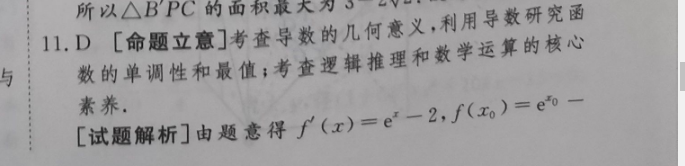 所以△B′PC 的面积最大为 3－2√2
11. D [命题立意]考查导数的几何意义,利用导数研究函
数的单调性和最值;考查逻辑推理和数学运算的核心
素养.
[试题解析]由题意得 f′(x)=eˣ－2,f(x₀)=e^{x₀}－
与